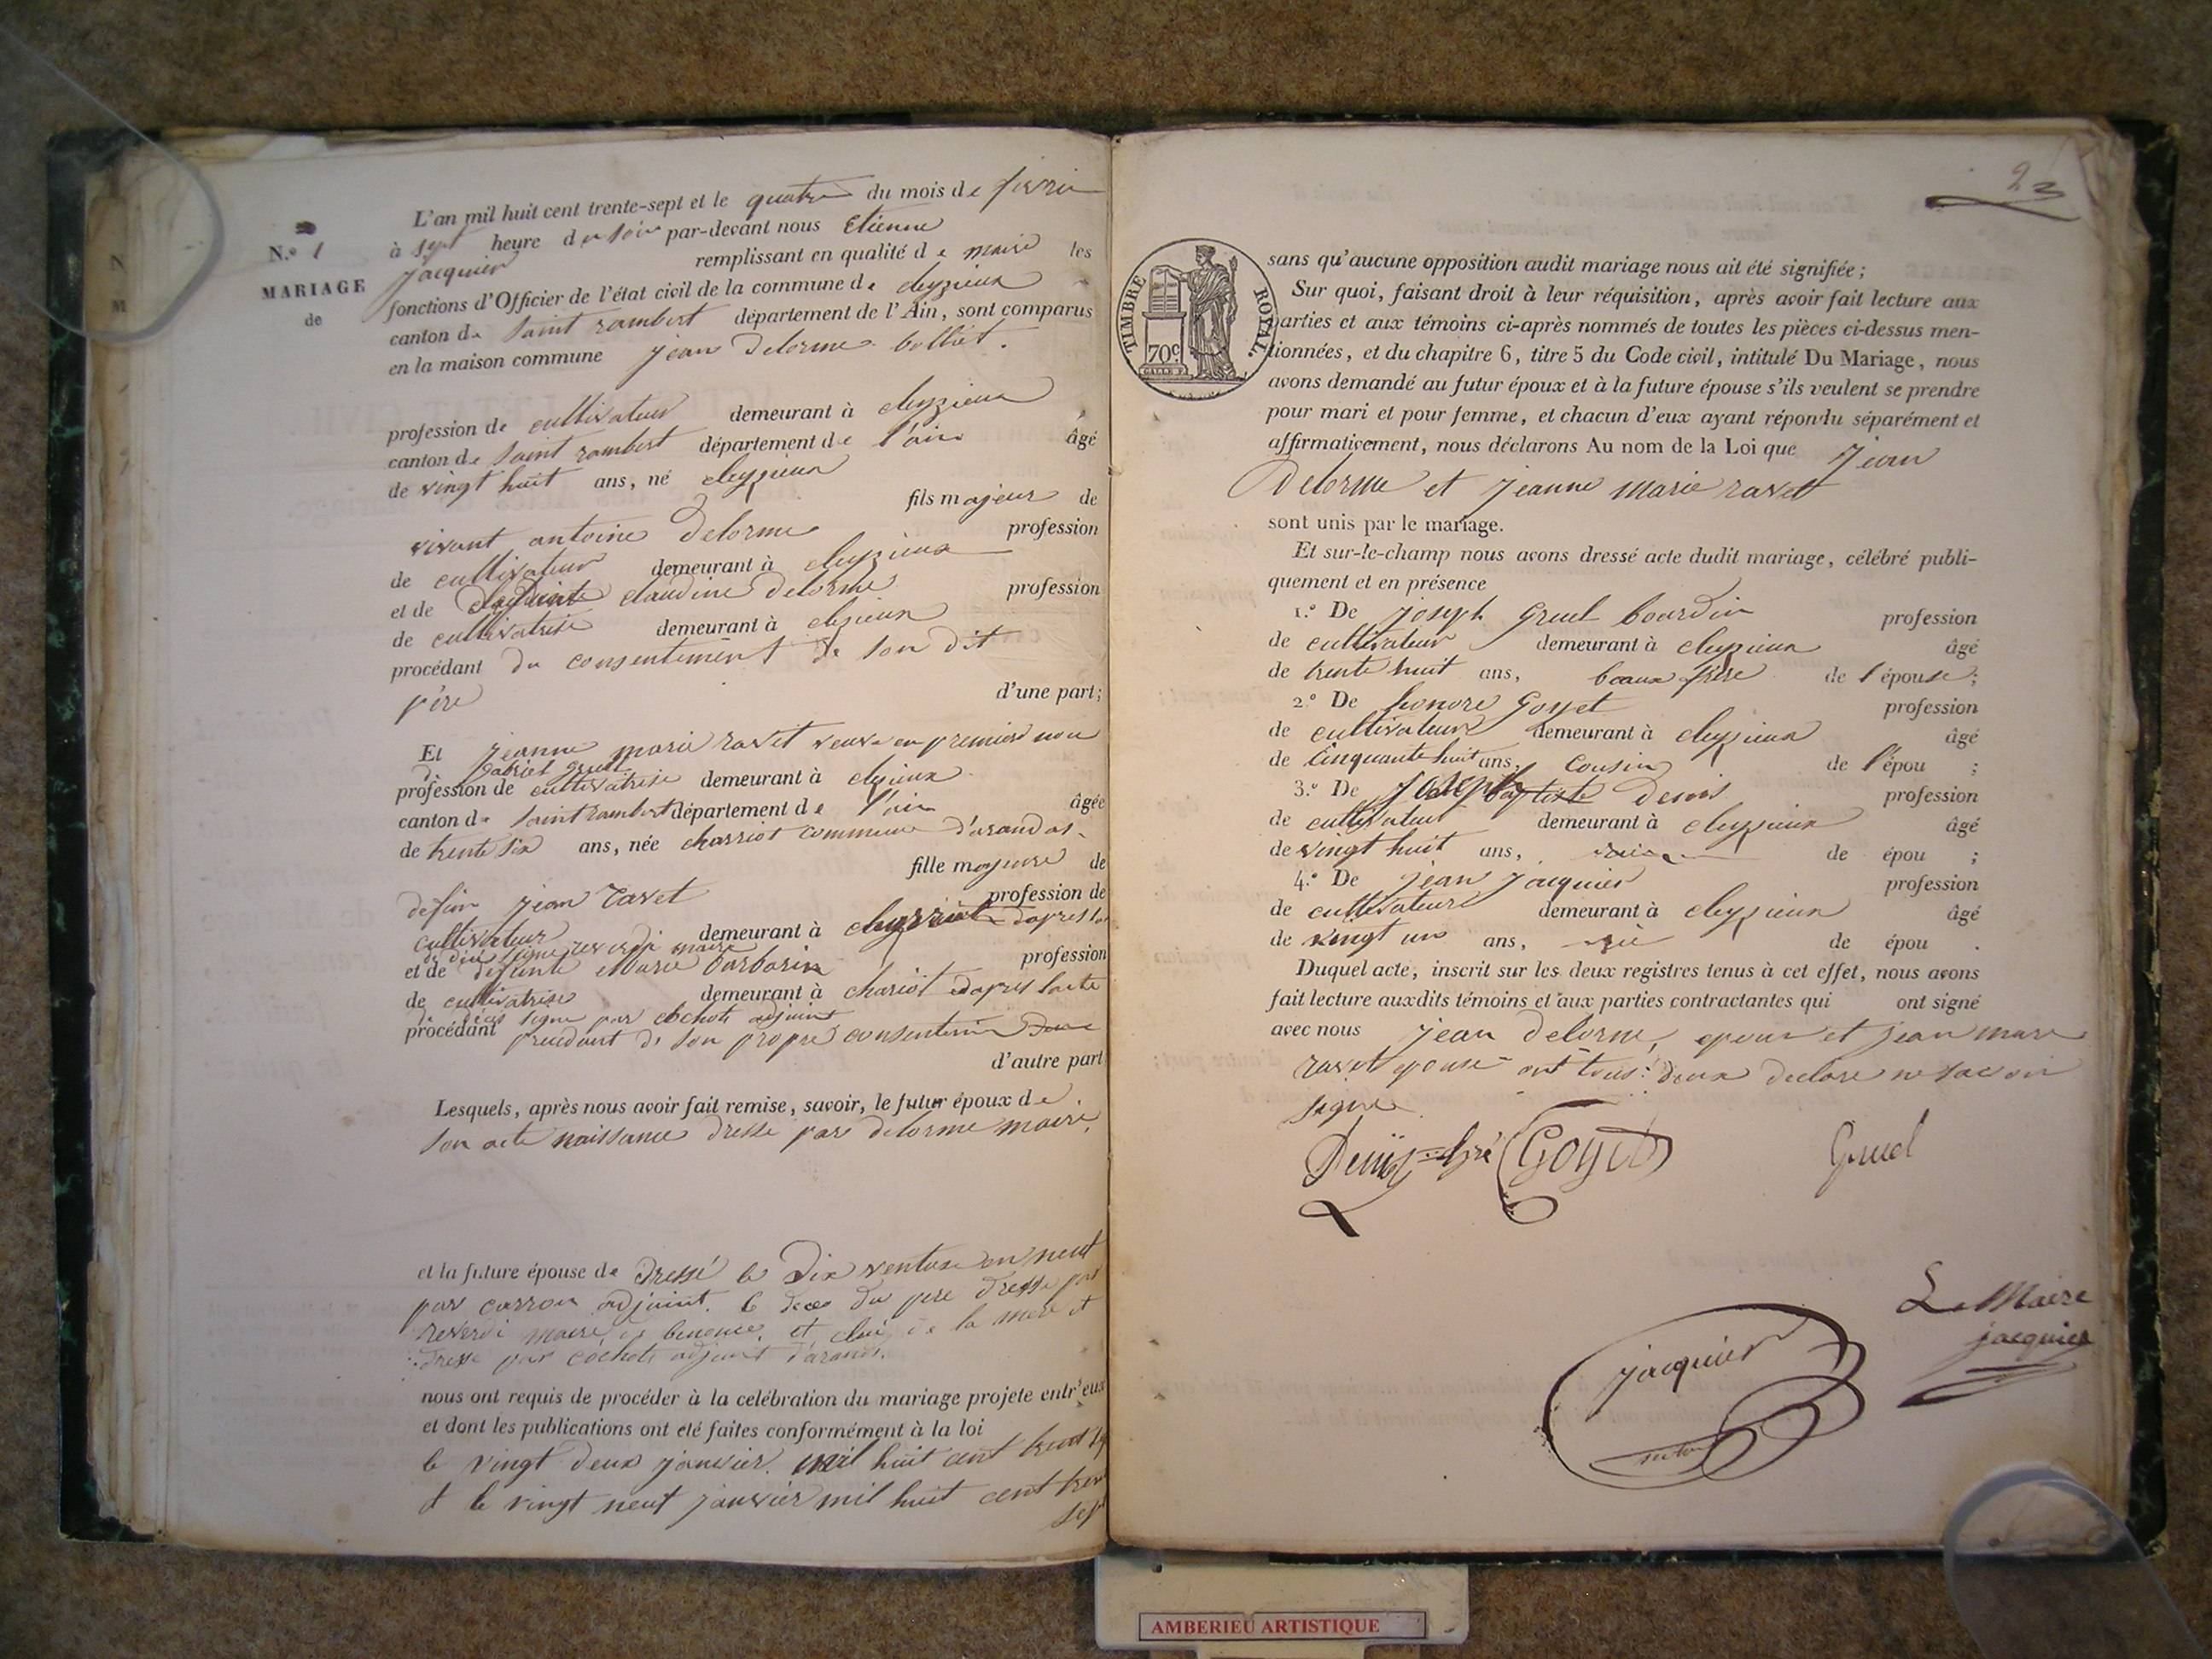 N.º 1
MARIAGE
de
L'an mil huit cent trente-sept et le quatre du mois de fevrie
à sept heure du soir par-devant nous Etienne
jacquier remplissant en qualité de maire les
fonctions d'Officier de l'état civil de la commune de cleyzieux
canton de saint rambert département de l'Ain, sont comparus
en la maison commune jean delorme bolliet.
profession de cultivateur demeurant à cleyzieux
canton de saint rambert département de l'ain âgé
de vingt huit ans, né cleyzieux
fils majeur de
vivant antoine Delorme profession
de cultivateur demeurant à cleyzieux
et de claudine delorme profession
de cultivatrise demeurant à clezieux
procédant du consentement de son dit
père d'une part;
Et jeanne marie ravet veuve en premier noce
de gabriel gruel
profession de cultivatrise demeurant à clezieux
canton de saint rambert département de l'ain âgée
de trente six ans, née charriot commune d'arandas
fille majeure de
defun jean ravet profession de
cultivateur demeurant à dapres
reverdi maire
et de defunte Marie barbarin profession
de cultivatrise demeurant à chariot dapres lacte
de déces signe par cochots adjoint
procédant procedant de son propre consentemen
d'autre part
Lesquels, après nous avoir fait remise, savoir, le futur époux de
son acte naissance dressé par delorme maire.
et la future épouse de dressé le dix ventose en neuf
par carron adjoint. le deces du pere dresse par
reverdi maire de benonce. et celui de la mere et
dresse par cochots adjoint d'arandas.
nous ont requis de procéder à la celébration du mariage projete entr'eux
et dont les publications ont été faites conformément à la loi
le vingt deux janvier. mil huit cent trent sept
et le vingt neuf janvier mil huit cent tren
sept
2
TIMBRE ROYAL.
70c
sans qu'aucune opposition audit mariage nous ait été signifiée;
Sur quoi, faisant droit à leur réquisition, après avoir fait lecture aux
parties et aux témoins ci-après nommés de toutes les pièces ci-dessus men-
tionnées, et du chapitre 6, titre 5 du Code civil, intitulé Du Mariage, nous
avons demandé au futur époux et à la future épouse s'ils veulent se prendre
pour mari et pour femme, et chacun d'eux ayant répondu séparément et
affirmativement, nous déclarons Au nom de la Loi que jean
delorme et jeanne marie ravet
sont unis par le mariage.
Et sur-le-champ nous avons dressé acte dudit mariage, célébré publi-
quement et en présence
1.º De joseph Gruel bourdin profession
de cultivateur demeurant à cleyzieux âgé
de trente huit ans, beaux frere de l'épouse;
2.º De honore Goyet profession
de cultivateur demeurant à cleyzieux âgé
de Cinquante huit ans, cousin de l'épou ;
3.º De denis profession
de cultivateur demeurant à cleyzieux âgé
de vingt huit ans, de épou ;
4.º De jean jacquier profession
de cultivateur demeurant à cleyzieux âgé
de vingt un ans, de épou .
Duquel acte, inscrit sur les deux registres tenus à cet effet, nous avons
fait lecture auxdits témoins et aux parties contractantes qui ont signé
avec nous jean delorme, epoux et jean mari
ravet epouse ont tous deux declare ne savoir
signe
Denis Goyet Gruel
Le Maire
jacquier
jacquier